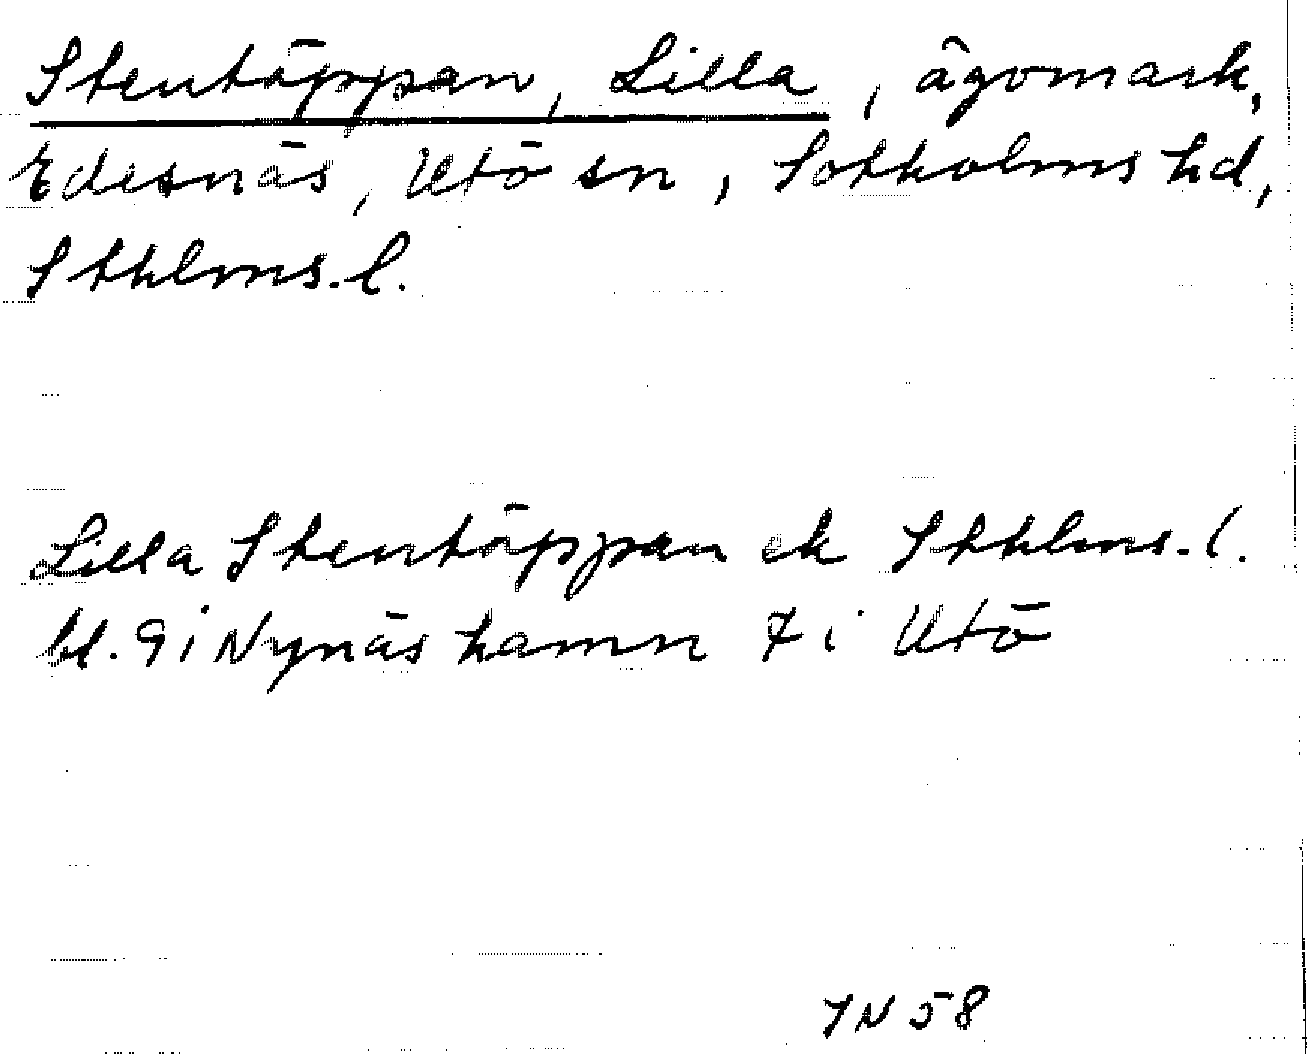 Stentäppan, Lilla, ägomark,
Edesnäs, Utö sn, Sotholms hd,
Sthlms. l.
Lilla Stentäppan ek Sthlms. l.
bl. 9 i Nynäshamn 7 i Utö
IN 58